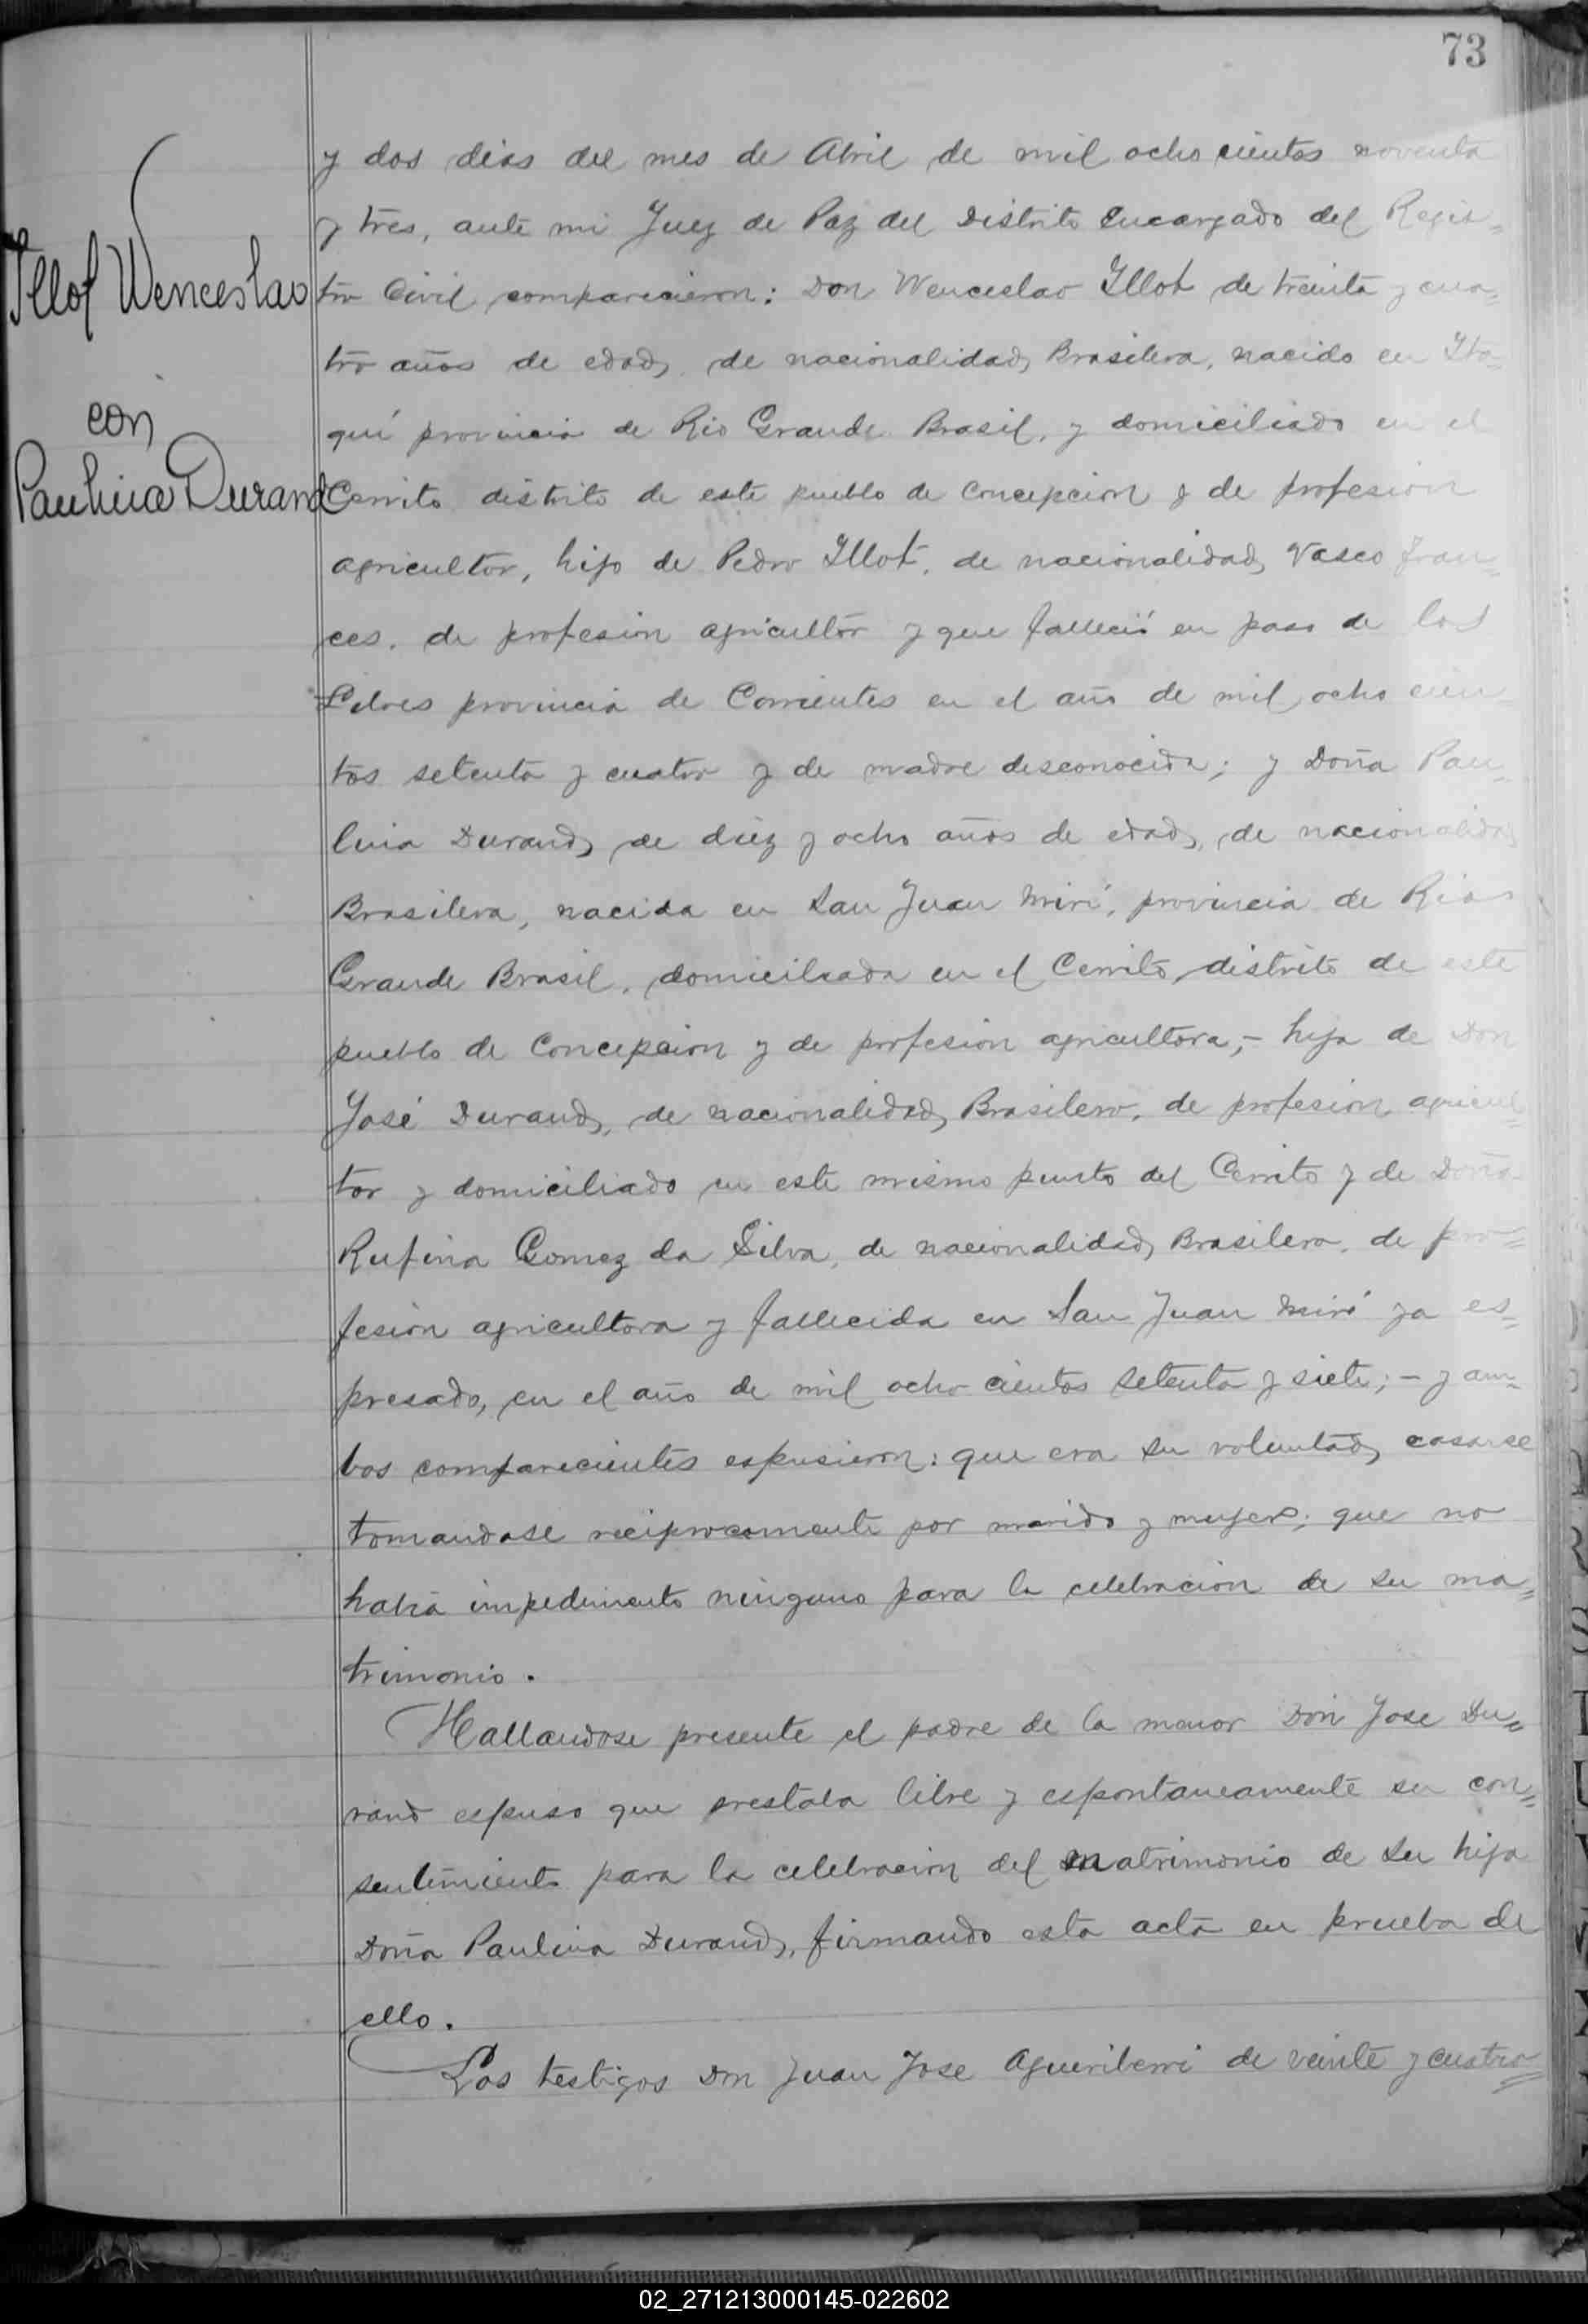 73
Illof Wenceslao
con
Paulina Durand
y dos dias del mes de Abril de mil ocho cientos noventa
y tres, ante mi Juez de Paz del Distrito Encargado del Regis=
tro Civil comparecieron: Don Wenceslao Illot de treinta y cua=
tro años de edad, de nacionalidad Brasilera, nacido en Ita=
quí provincia de Rio Grande Brasil, y domiciliado en el
Cerrito distrito de este pueblo de Concepcion y de profesion
agricultor, hijo de Pedro Illot, de nacionalidad Vasco Fran=
ces, de profesion agricultor y que falleció en paso de los
Libres provincia de Corrientes en el año de mil ocho cien
tos setenta y cuatro y de madre desconocida; y Doña Pau=
lina Durand, de diez y ocho años de edad, de nacionalidad
Brasilera, nacida en San Juan Mirí, provincia de Rio
Grande Brasil, domiciliada en el Cerrito distrito de este
pueblo de Concepcion y de profesion agricultora,- hija de Don
José Durand, de nacionalidad Brasilero, de profesion agricul=
tor y domiciliado en este mismo punto del Cerrito y de Doña
Rufina Gomez da Silva, de nacionalidad Brasilera, de pro=
fesion agricultora y fallecida en San Juan Mirí ya es=
presado, en el año de mil ocho cientos setenta y siete;- y am=
bos comparecientes espusieron: que era su voluntad casarse
tomandose reciprocamente por marido y mujer; que no
habia impedimento ninguno para la celebracion de su ma=
trimonio.
Hallandose presente el padre de la menor Don Jose Du=
rand espuso que prestaba libre y espontaneamente su con=
sentimiento para la celebracion del matrimonio de su hija
Doña Paulina Durand, firmando esta acta en prueba de
ello.
Los testigos Don Juan Jose Agueriberri de veinte y cuatro
02_271213000145-022602